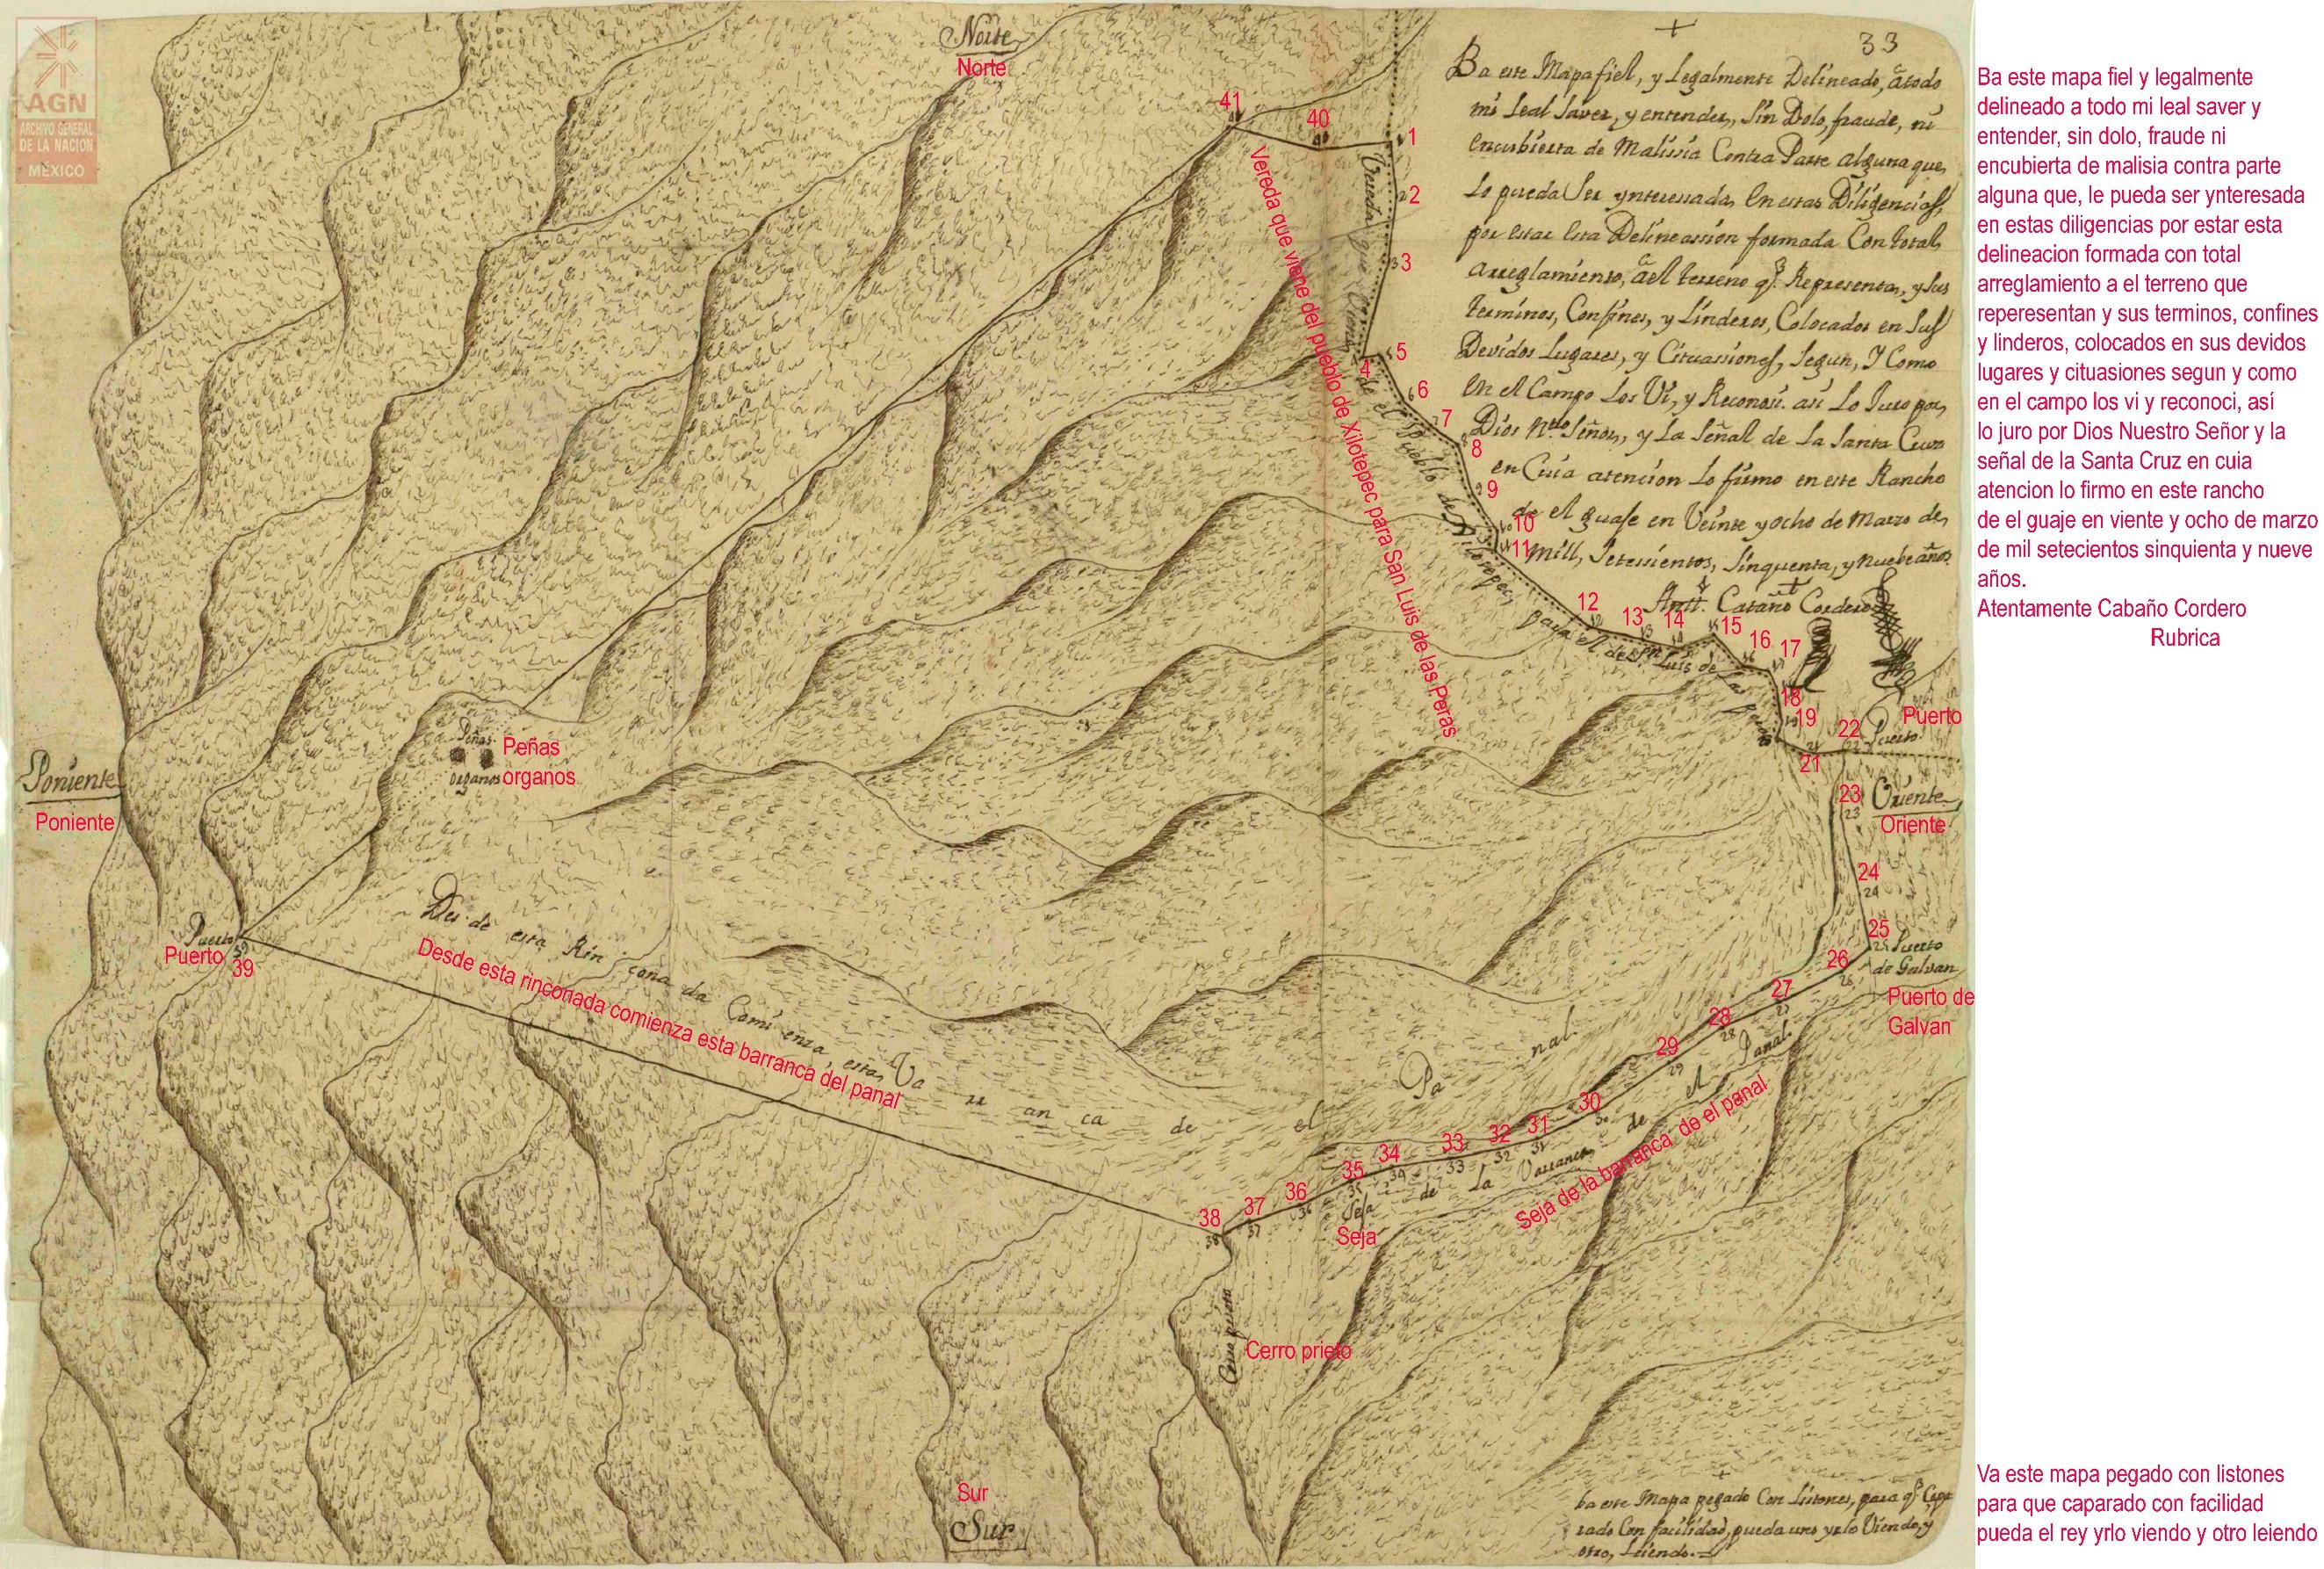 AGN
ARCHIVO GENERAL
DE LA NACION
MÉXICO
Norte
Norte
33
Ba este Mapa fiel, y Legalmente Delineado, a todo
mi Leal Saver, y entender, Sin Dolo, fraude, ni
encubierta de Malissia Contra Parte alguna que,
Le pueda Ser ynteressada, En estas Diligencias,
por estar Esta Delineassion formada Con total,
arreglamiento, a el terreno q.e Representan, y Sus
terminos, Confines, y Linderos, Colocados en Sus
Devidos Lugares, y Cituassiones, Segun, Y Como
en el Campo Los Vi, y Reconosi. asi Lo Juro por
Dios Ntro Señor, y La Señal de La Santa Cruz
en Cuia atencion Lo firmo en este Rancho
de el guaje en Veinte y ocho de Marzo de,
Mill, Setessientos, Sinquenta, y nuebe años.
Cordero
Ba este mapa fiel y legalmente
delineado a todo mi leal saver y
entender, sin dolo, fraude ni
encubierta de malisia contra parte
alguna que, le pueda ser ynteresada
en estas diligencias por estar esta
delineacion formada con total
arreglamiento a el terreno que
reperesentan y sus terminos, confines
y linderos, colocados en sus devidos
lugares y cituasiones segun y como
en el campo los vi y reconoci, así
lo juro por Dios Nuestro Señor y la
señal de la Santa Cruz en cuia
atencion lo firmo en este rancho
de el guaje en viente y ocho de marzo
de mil setecientos sinquienta y nueve
años.
Atentamente Cabaño Cordero
Rubrica
41
40
1
2
3
4
5
6
7
8
9
10
11
12
13
14
15
16
17
18
19
21
22
Vereda que viene de el Pueblo de Xilotepec, para el de Sn Luis de las
Vereda que viene del pueblo de Xilotepec para San Luis de las Peras
Puerto
Puerto
Oriente
Oriente
23
23
24
24
25
25
Puerto
de Galvan
Puerto de
Galvan
26
26
27
27
28
28
29
29
30
30
31
31
32
32
33
33
34
34
35
35
36
36
37
37
38
38
Peñas
organos
Peñas
organos
Poniente
Poniente
Puerto
Puerto
39
39
Desde esta Rinconada Comienza, esta, Varranca de el Panal
Desde esta rinconada comienza esta barranca del panal
Seja de La Varranca de el Panal
Seja
Seja de la barranca de el panal
Cerro prieto
Cerro prieto
Sur
Sur
ba este Mapa pegado Con Listones, para q.e Capa
rado Con facilidad, pueda uno yrlo Viendo, y
otro, Leiendo.
Va este mapa pegado con listones
para que caparado con facilidad
pueda el rey yrlo viendo y otro leiendo